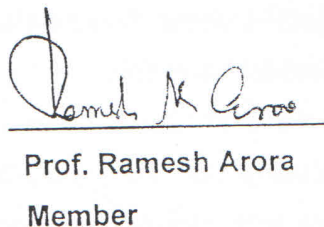 Ramesh K Arora
Prof. Ramesh Arora
Member